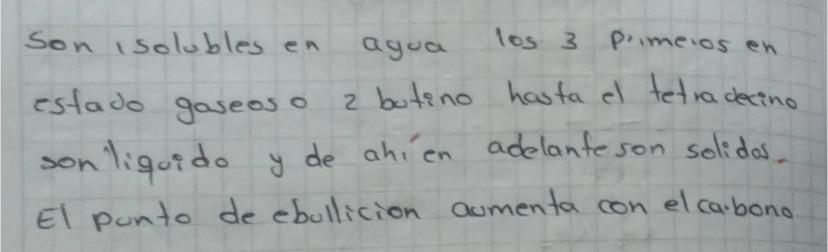 Son isolubles en agua los 3 primeros en
estado gaseoso 2 butino hasta el tetradecino
son liquido y de ahí en adelante son solidos.
El punto de ebullicion aumenta con el carbono